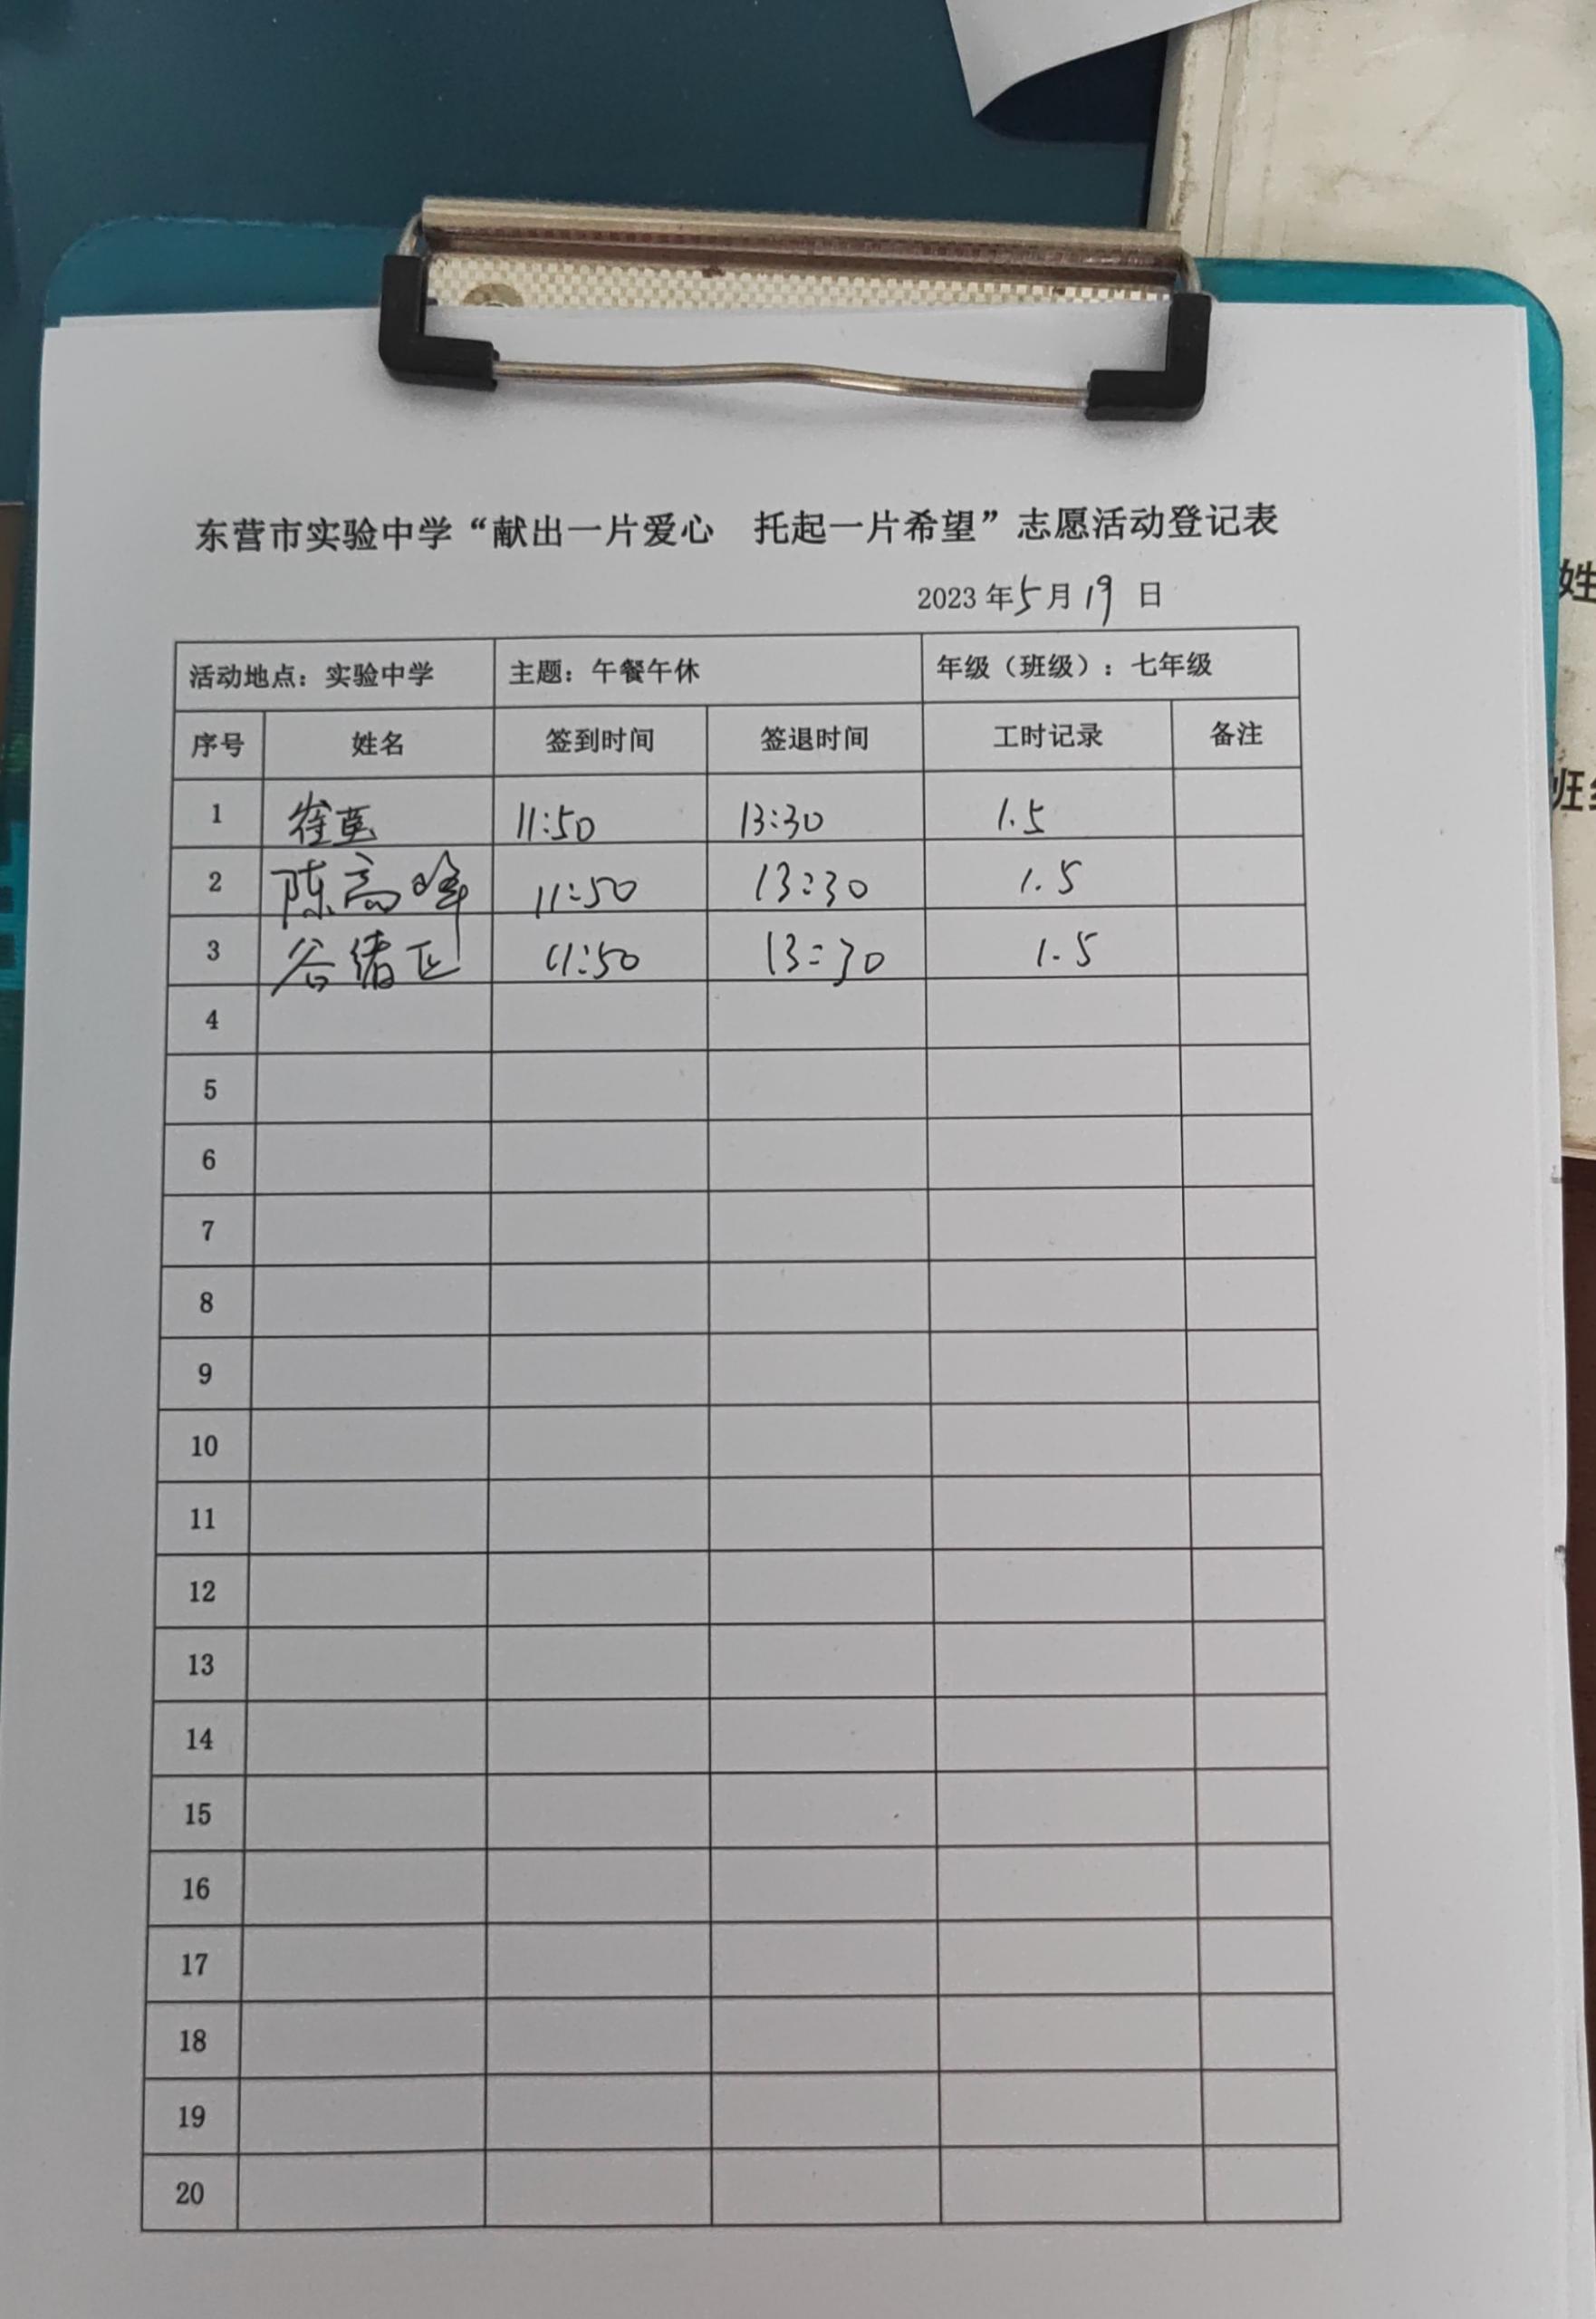 东营市实验中学“献出一片爱心 托起一片希望”志愿活动登记表
2023年5月19日
活动地点：实验中学 主题：午餐午休 年级（班级）：七年级
序号 姓名 签到时间 签退时间 工时记录 备注
1 崔 11:50 13:30 1.5
2 陈高峰 11:50 13:30 1.5
3 谷绪正 11:50 13:30 1.5
4
5
6
7
8
9
10
11
12
13
14
15
16
17
18
19
20
姓
班